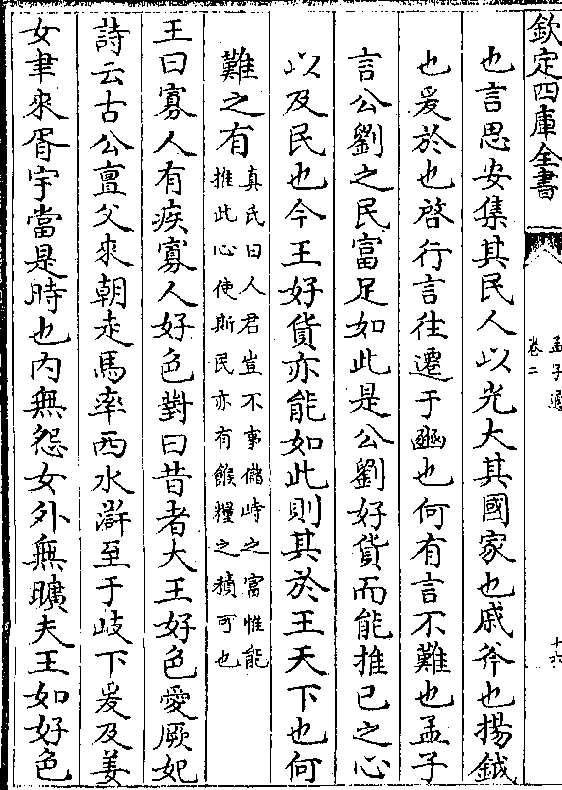 欽定四庫全書
孟子通
卷二
十六
也言思安集其民人以光大其國家也戚斧也揚鉞
也爰於也啓行言往遷于豳也何有言不難也孟子
言公劉之民富足如此是公劉好貨而能推己之心
以及民也今王好貨亦能如此則其於王天下也何
難之有
真氏曰人君豈不事儲峙之富惟能
推此心使斯民亦有餱糧之積可也
王曰寡人有疾寡人好色對曰昔者大王好色愛厥妃
詩云古公亶父來朝走馬率西水滸至于岐下爰及姜
女聿來胥宇當是時也內無怨女外無曠夫王如好色